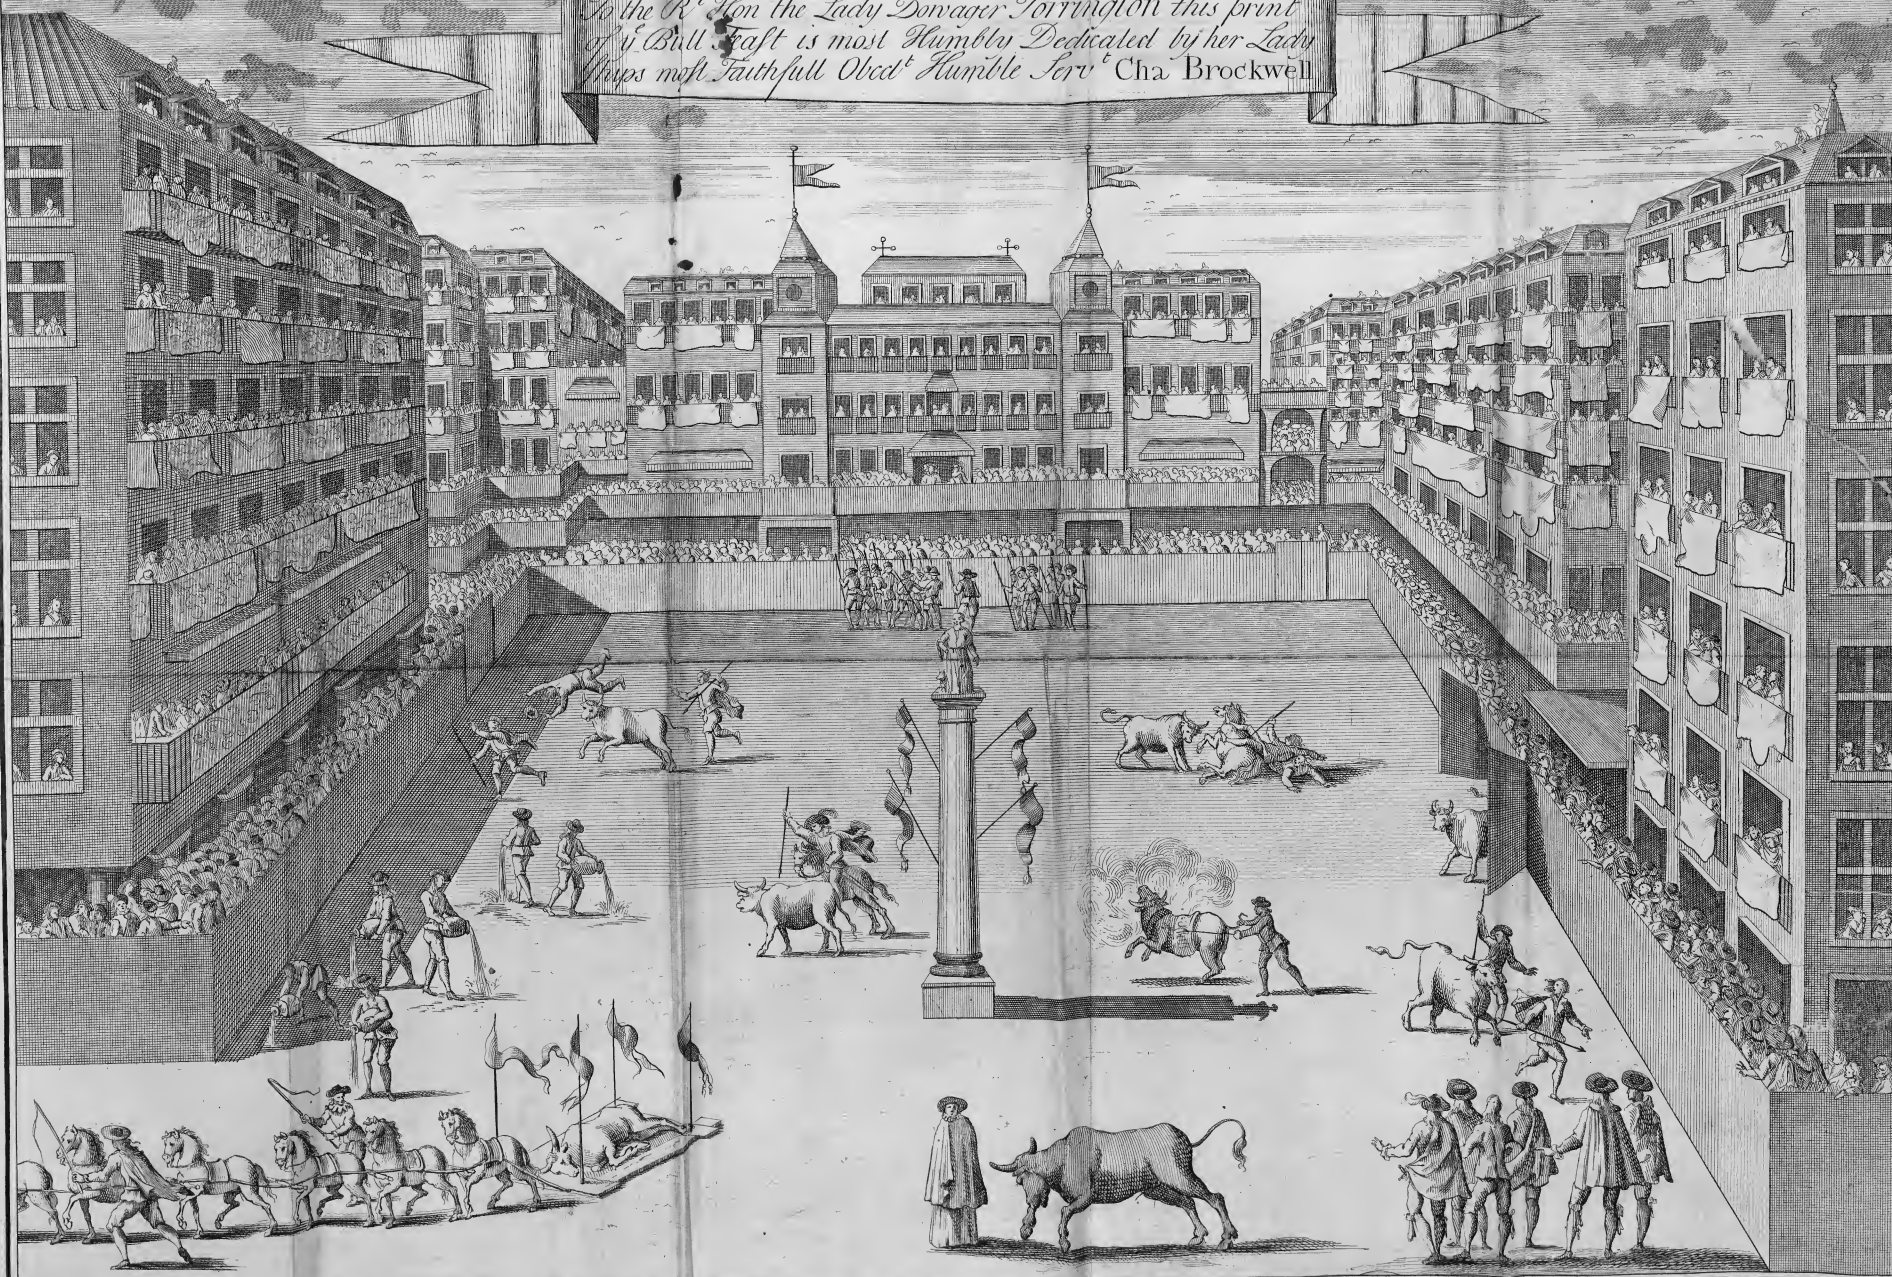 To the Rt Hon the Lady Dowager Torrington this print
of ye Bull Feast is most Humbly Dedicated by her Lady
ships most Faithfull Obedt Humble Servt Cha Brockwell